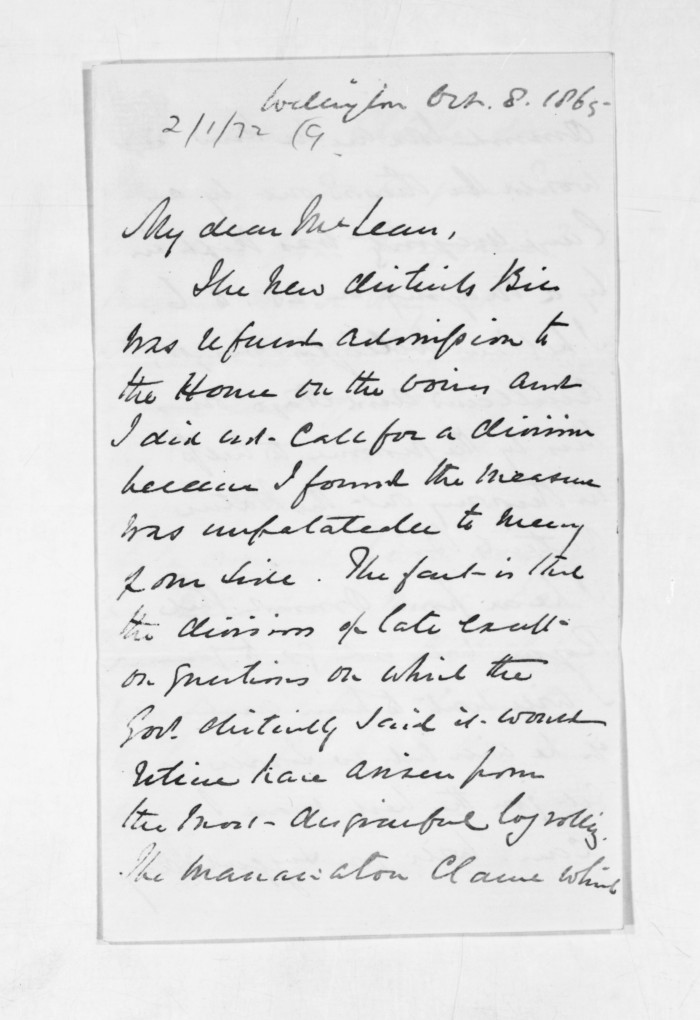 Wellington Oct. 8. 1865
2/1/72 (9
My dear McLean,
The New districts Bill
was refused admission to
the House on the voices and
I did not call for a division
because I found the measure
was unpalatable to many
of our side. The fact is that
the divisions of late except
on questions on which the
Govt. distinctly said it would
retire have arisen from
the most disgraceful logrolling.
The Manawatu Clause which